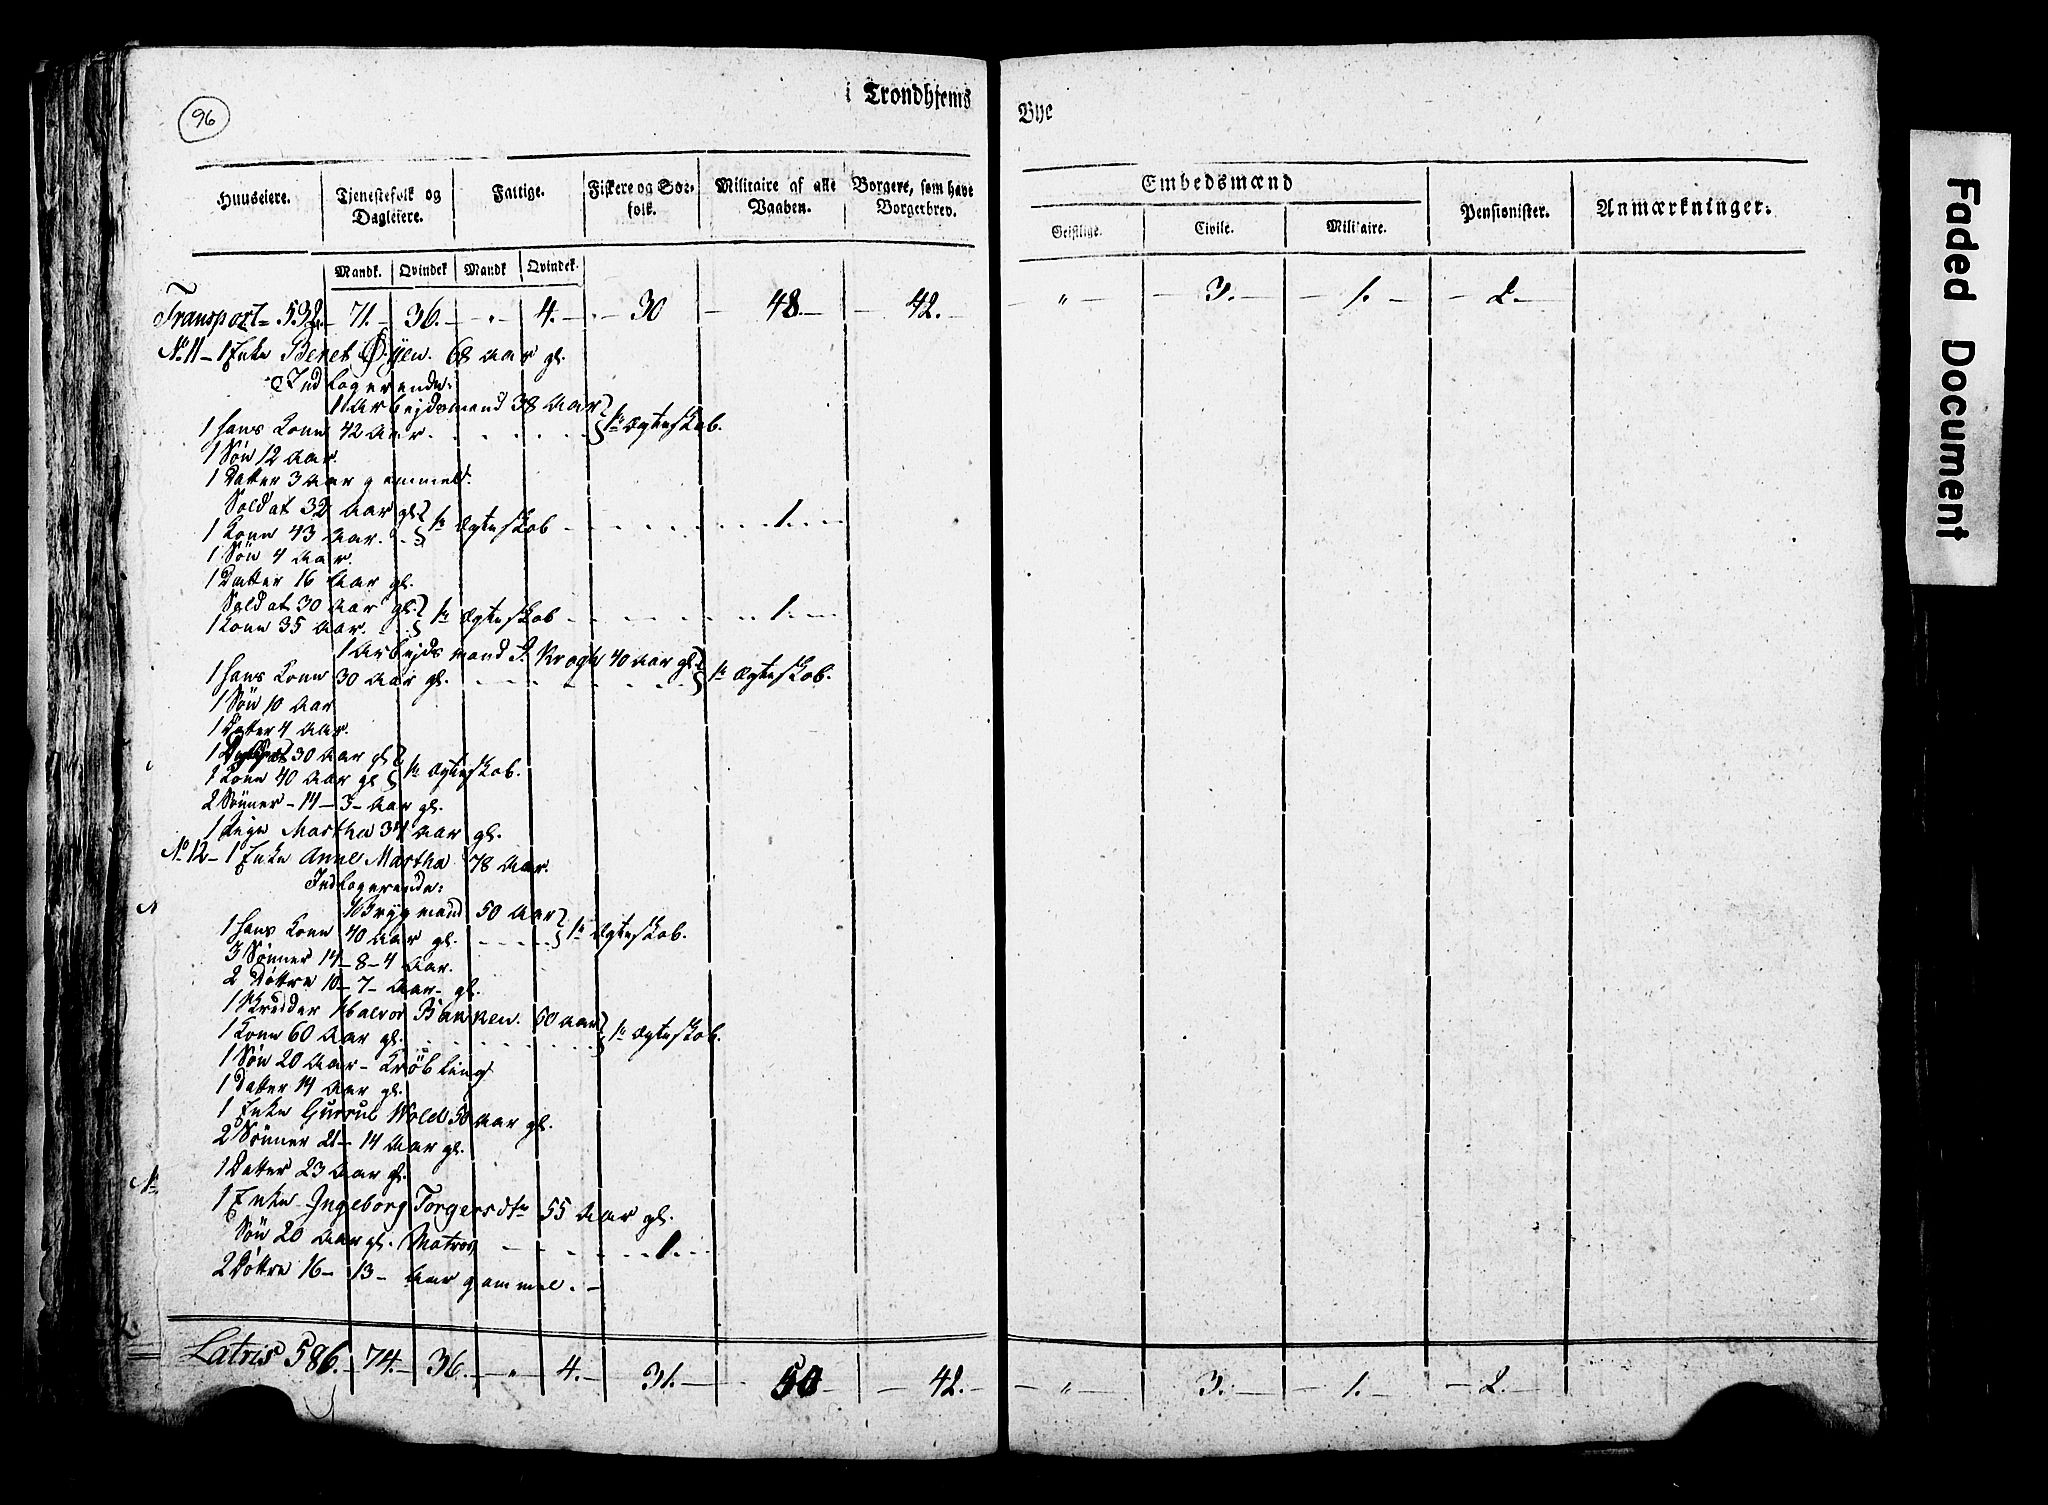 96
i Trondhjems Bye
Huuseiere. Tjenestefolk og Dagleiere. Fattige. Fiskere og Søefolk. Militaire af alle Vaaben. Borgere, som have Borgerbrev. Embedsmænd Pensionister. Anmærkninger.
Geistlige. Civile. Militaire.
Mandk. Qvindek Mandk Qvindek.
Transport= 532.- 71.- 36.- " - 4.- 30 - 48.- - 42.- - " - - 3.- - 1.- - 2.-
No. 11 - 1 Enke Beret Øyen. 68 Aar gl.
Indlogerende:
1 Arbejdsmand 38 Aar
1 hans Kone 42 Aar. } 1te Ægteskab.
1 Søn 12 Aar.
1 Datter 3 Aar gammel.
Soldat 32 Aar gl. - 1. -
1 Kone 43 Aar. } 1te Ægteskab
1 Søn 4 Aar.
1 Datter 16 Aar gl.
Soldat 30 Aar gl. - 1. -
1 Kone 35 Aar. } 1te Ægteskab
1 Arbejdsmand P. Krogh 40 Aar gl.
1 hans Kone 30 Aar gl. } 1te Ægteskab.
1 Søn 10 Aar
1 Datter 4 Aar.
1 30 Aar gl.
1 Kone 40 Aar gl. } 1te Ægteskab.
2 Sønner - 14 - 3 - Aar gl.
1 Pige Martha 34 Aar gl.
No. 12 - 1 Enke Anne Martha 78 Aar.
Indlogerende:
1 Brygmand 50 Aar
1 hans Kone 40 Aar gl. } 1te Ægteskab.
3 Sønner 14 - 8 - 4 Aar.
2 Døttre 10 - 7 - Aar - gl.
1 Halvor Bakken. 60 Aar
1 Kone 60 Aar gl. } 1te Ægteskab.
1 Søn 20 Aar - Krøbling
1 Datter 14 Aar gl.
1 Enke Gurrul Wold 50 Aar gl.
2 Sønner 21 - 14 Aar gl.
1 Datter 23 Aar gl.
1 Enke Ingeborg Torgersdtr 55 Aar gl.
Søn 20 Aar gl. Matros - 1. -
2 Døttre 16 - 13 - Aar gammel. -
Latris 586.- 74.- 36.- " - 4.- 31.- 50 - - 42.- - " - 3.- - 1.- - 2.-
Faded Document